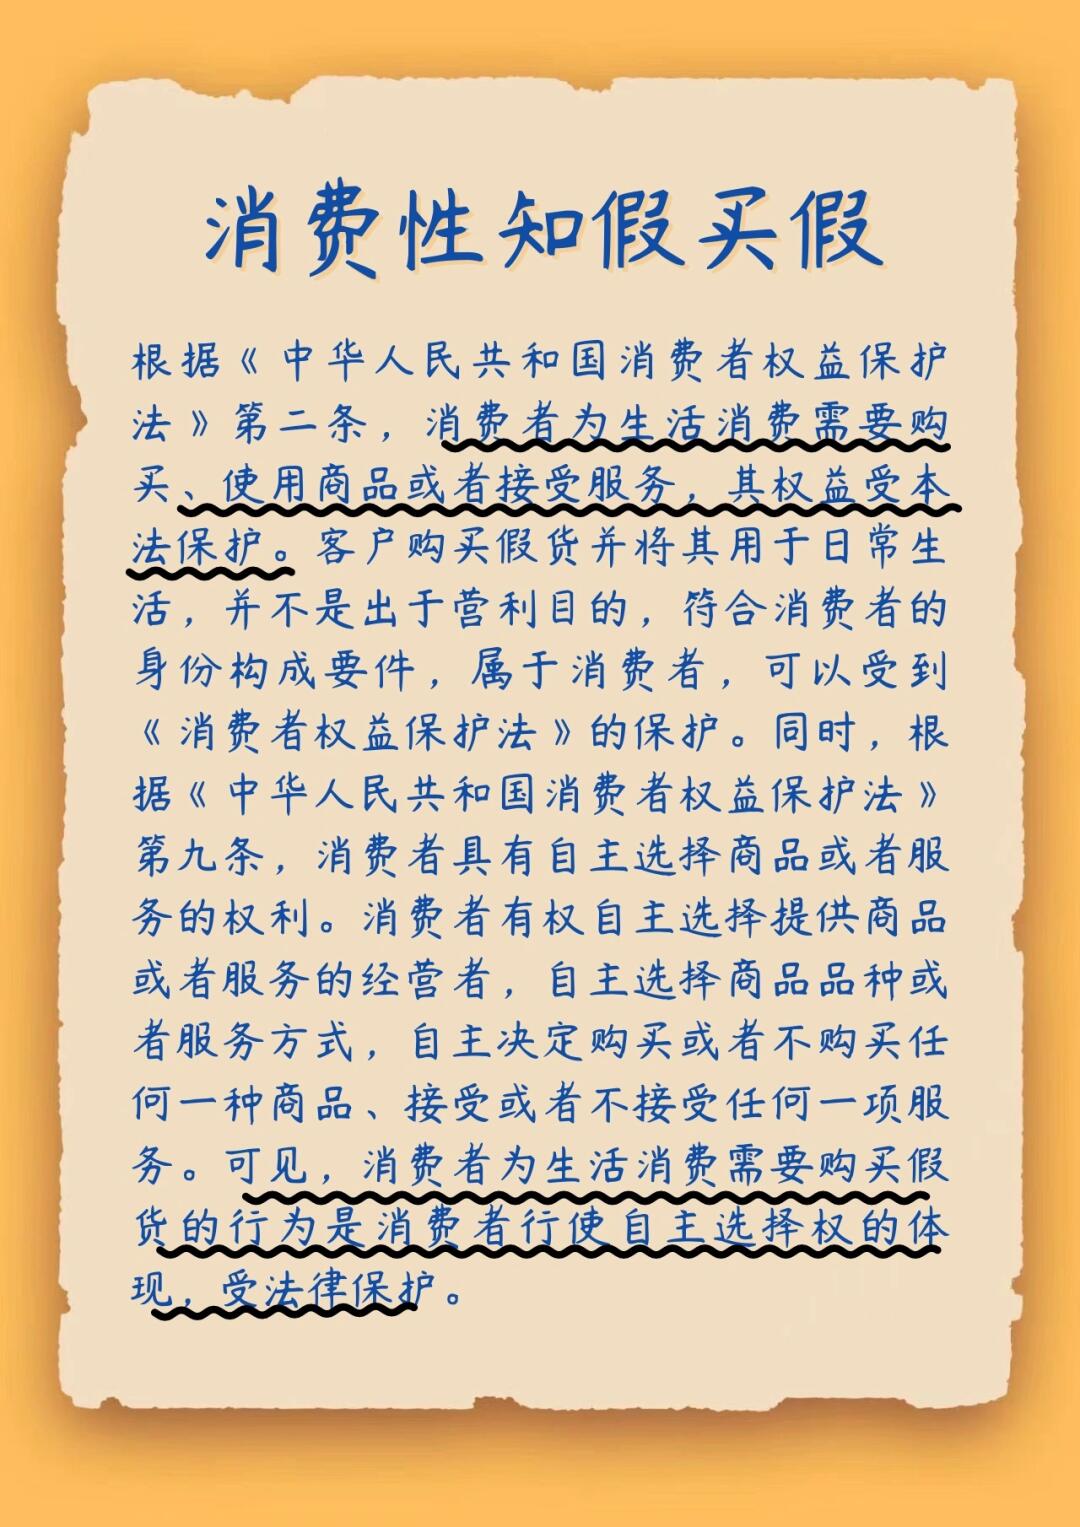 消费性知假买假
根据《中华人民共和国消费者权益保护
法》第二条，消费者为生活消费需要购
买、使用商品或者接受服务，其权益受本
法保护。客户购买假货并将其用于日常生
活，并不是出于营利目的，符合消费者的
身份构成要件，属于消费者，可以受到
《消费者权益保护法》的保护。同时，根
据《中华人民共和国消费者权益保护法》
第九条，消费者具有自主选择商品或者服
务的权利。消费者有权自主选择提供商品
或者服务的经营者，自主选择商品品种或
者服务方式，自主决定购买或者不购买任
何一种商品、接受或者不接受任何一项服
务。可见，消费者为生活消费需要购买假
货的行为是消费者行使自主选择权的体
现，受法律保护。